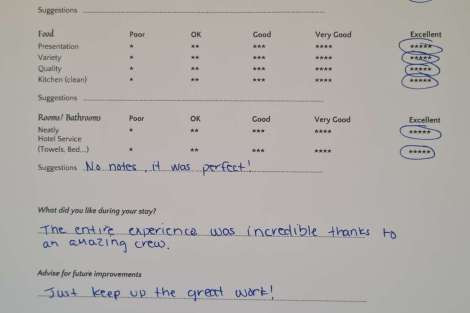 Suggestions
Food Poor OK Good Very Good Excellent
Presentation * ** *** **** *****
Variety * ** *** **** *****
Quality * ** *** **** *****
Kitchen (clean) * ** *** **** *****
Suggestions
Rooms/ Bathrooms Poor OK Good Very Good Excellent
Neatly * ** *** **** *****
Hotel Service
(Towels, Bed...) * ** *** **** *****
Suggestions No notes, it was perfect!
What did you like during your stay?
The entire experience was incredible thanks to
an amazing crew.
Advise for future improvements
Just keep up the great work!